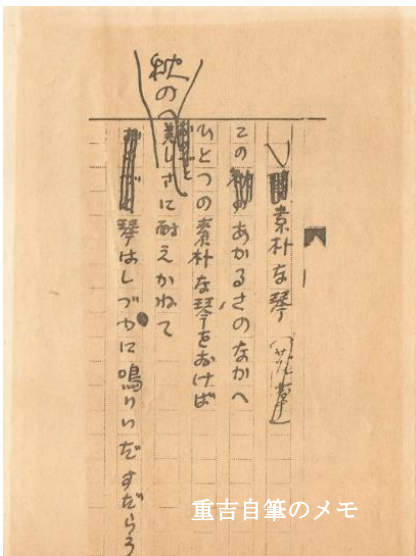 素朴な琴
このあかるさのなかへ
ひとつの素朴な琴をおけば
秋の美しさに耐えかねて
琴はしづかに鳴りいだすだらう
重吉自筆のメモ